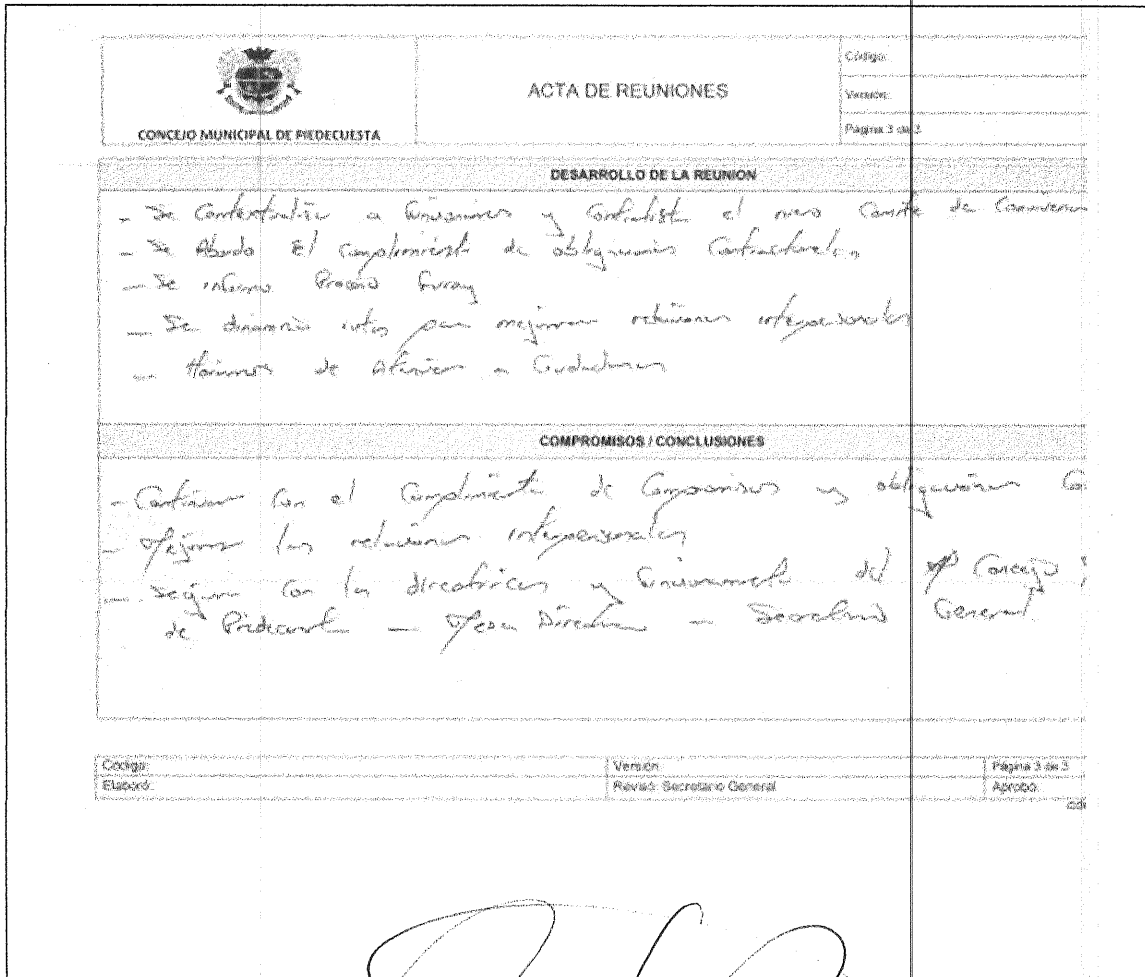 CONCEJO MUNICIPAL DE PIEDECUESTA
ACTA DE REUNIONES
Código:
Versión:
Página 3 de 3
DESARROLLO DE LA REUNION
- Se a y Contratist el nuevo Comite de
- Se Abordo El cumplimient de obligaciones Contractuales
- Se informo Proceso
- Se para mejorar relaciones interpersonales
- de Atencion a
COMPROMISOS / CONCLUSIONES
- Continuar Con el Cumplimiento de Compromisos y obligaciones Co
- Mejorar las relaciones interpersonales
- Seguir Con las directrices y del Concejo
de Piedecuesta - Mesa Directiva - Secretario General
Código:
Versión:
Página 3 de 3
Elaboró:
Revisó: Secretario General
Aprobó: